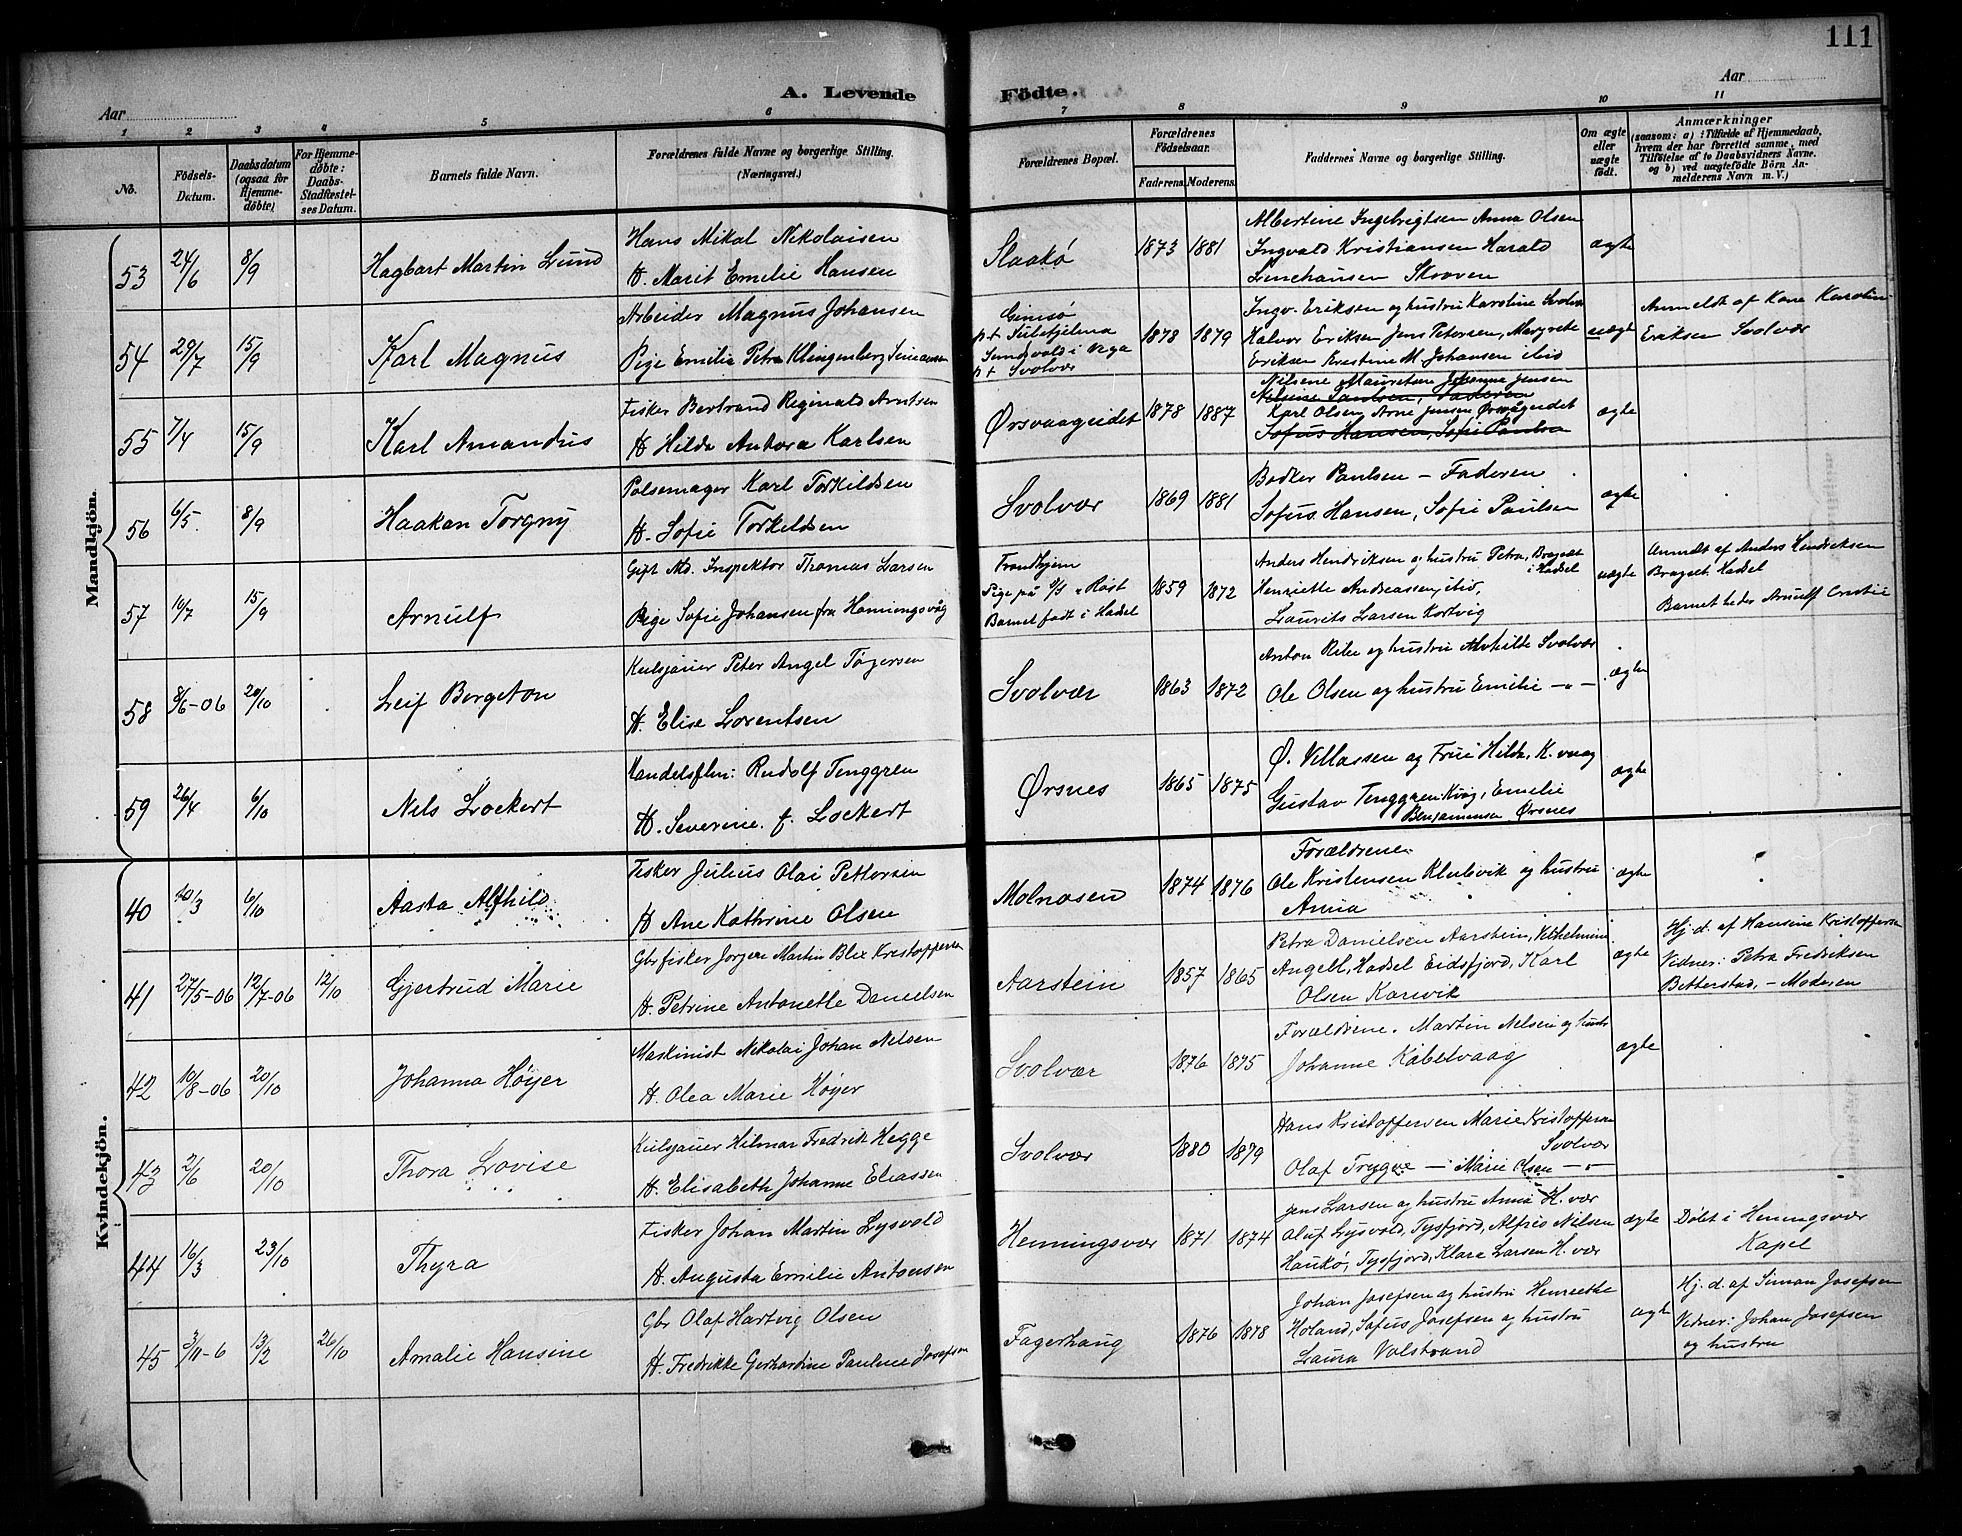 111
A. Levende Födte.
Aar
Aar
1 2 3 4 5 6 7 8 9 10 11
No.
Födsels-Datum.
Daabsdatum (ogsaa for Hjemme-döbte)
For Hjemme-döbte: Daabs-Stadfæstel-ses Datum.
Barnets fulde Navn.
Forældrenes fulde Navne og borgerlige Stilling. (Næringsvei.)
Forældrenes Bopæl.
Forældrenes Födselsaar.
Faderens. Moderens.
Faddernes Navne og borgerlige Stilling.
Om ægte eller uægte født.
Anmærkninger
(saasom: a) i Tilfælde af Hjemmedaab, hvem der har forrettet samme, med Tilföielse af to Daabsvidners Navne. og b) ved uægtefödte Börn An-melderens Navn m. V.)
Mandkjön.
53 24/6 8/9 Hagbart Martin Lund
Hans Mikal Nikolaisen
H. Marit Emelie Hansen
Slaakø 1873 1881
Albertine Ingebrigtsen Anna Olsen
Ingvald Kristiansen Harald
Linehansen Skroven
ægte
54 29/7 15/9 Karl Magnus
Arbeider Magnus Johansen
Pige Emilie Petra Klingenberg
Gimsø
pt Sulitjelma
Sundvold i Vega
pt Svolvær
1878 1879
Ingv. Eriksen og hustru Karoline Svolvær
Halvor Eriksen Jens Petersen, Margrete
Eriksen Kristine M. Johansen ibid
uægte
Anmeldt af Kone Karoline
Eriksen Svolvær
55 7/4 15/9 Karl Amandus
Fisker Bertrand Reginald Arntsen
H Hilda Antora Karlsen
Ørsvaageidet 1878 1887
Nilsine Mauretsen Johanna Jensen
Nilsine Paulsen, Faderen
Karl Olsen, Arne Jensen Ørsvågeidet
Sofus Hansen, Sofie Paulsen
ægte
56 6/5 8/9 Haakon Torgny
Pølsemager Karl Torkildsen
H. Sofie Torkeldsen
Svolvær 1869 1881
Bødker Paulsen - Faderen
Sofus Hansen, Sofie Paulsen
ægte
57 10/7 15/9 Arnulf
Gift Md. Inspektør Thomas Larsen
Pige Sofie Johansen fra Honningsvåg
Trondhjem
Pige på Røst
Barnet født i Hadsel
1859 1872
Anders Hendriksen og hustru Petra, Bragnæt
i Hadsel
Henriette Andreassen, ibid,
Laurits Larsen Kortvig
uægte
Anmeldt af Anders Hendriksen
Bragnet Hadsel
Barnet heder Arnulf
58 8/6-06 20/10 Leif Bergeton
Kulsjauer Peter Angel Tørgersen
H. Elise Lorentsen
Svolvær 1863 1872
Anton Ribe og hustru Mathilde Svolvær
Ole Olsen og hustru Emilie - " -
ægte
59 26/4 6/10 Nels Lockert
Handelsflm: Rudolf Tenggren
H. Severine. f. Lockert
Ørsnes 1865 1875
Ø. Vellassen og Frue Hilda, K.vaag
Gustav Tenggren Kvåg, Emelie
Benjaminsen Ørsnes
ægte
Kvindekjön.
40 10/3 6/10 Aasta Alfhild
Fisker Julius Olai Pettersen
H Ane Kathrine Olsen
Molnosen 1874 1876
Forældrene.
Ole Kristensen Kleubvik og hustru
Anna
ægte
41 27/5-06 12/7-06 12/10 Gjertrud Marie
Gbr fisker Jørgen Martin Blix Kristoffersen
H. Petrine Antonette Danielsen
Aarstein 1857 1865
Petra Danielsen Aarstein, Vilhelmine
Angell, Hadsel Eidsfjord, Karl
Olsen Karivik
ægte
Hj. d. af Hansine Kristoffersen
Vidner: Petra Fredriksen
Bitterstad, - Moderen
42 10/8-06 20/10 Johanna Høyer
Maskinist Nikolai Johan Nelsen
H. Olea Marie Høyer
Svolvær 1876 1875
Forældrene. Martin Nelsen og hustr
Johanne Kabelvaag
ægte
43 2/6 20/10 Thora Lovise
Kulsjauer Hilmar Fredrik Hegge
H. Elisabeth Johanne Eliassen
Svolvær 1880 1879
Hans Kristoffersen Marie Kristoffersen
Svolvær
Olaf Trygve - " Marie Olsen - " -
44 16/3 23/10 Thyra
Fisker Johan Martin Lysvold
H. Augusta Emilie Antonsen
Henningsvær 1871 1874
Jens Larsen og hustru Anna H. vær
Oluf Lysvold, Tysfjord, Alfrid Nilsen
Haukø, Tysfjord, Klara Larsen H. vær
ægte
Døbt i Henningsvær
Kapel
45 3/11-6 13/2 26/10 Amalie Hansine
Gbr Olaf Hartvig Olsen
H. Fredrikke Gerhardine Pauline Josefsen
Fagerhaug 1876 1878
Johan Josefsen og hustru Henriette
Holand, Sofus Josefsen og hustru
Laura Volstrand
ægte
Hj. d. af Simon Josefsen
Vidner: Johan Josefsen
og hustru